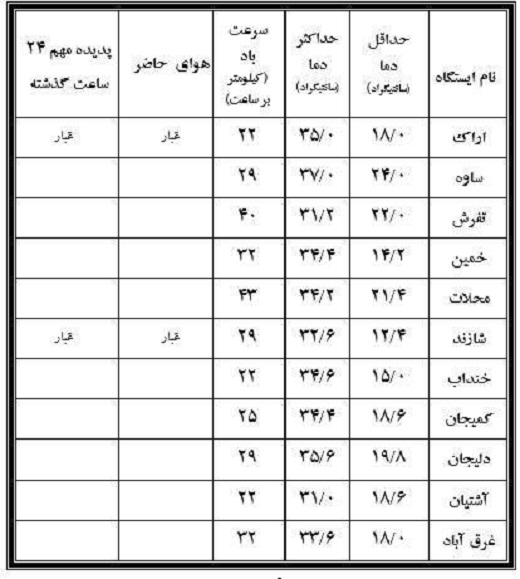 نام ایستگاه حداقل دما (سانتیگراد) حداکثر دما (سانتیگراد) سرعت باد (کیلومتر بر ساعت) هوای حاضر پدیده مهم ۲۴ ساعت گذشته
اراک ۱۸/۰ ۳۵/۰ ۲۲ غبار غبار
ساوه ۲۴/۰ ۳۷/۰ ۲۹
تفرش ۲۲/۰ ۳۱/۲ ۴۰
خمین ۱۴/۲ ۳۴/۴ ۳۲
محلات ۲۱/۴ ۳۴/۲ ۴۳
شازند ۱۲/۴ ۳۲/۶ ۲۹ غبار غبار
خنداب ۱۵/۰ ۳۴/۶ ۲۲
کمیجان ۱۸/۶ ۳۴/۴ ۲۵
دلیجان ۱۹/۸ ۳۵/۶ ۲۹
آشتیان ۱۸/۶ ۳۱/۰ ۲۲
غرق آباد ۱۸/۰ ۳۳/۶ ۳۲